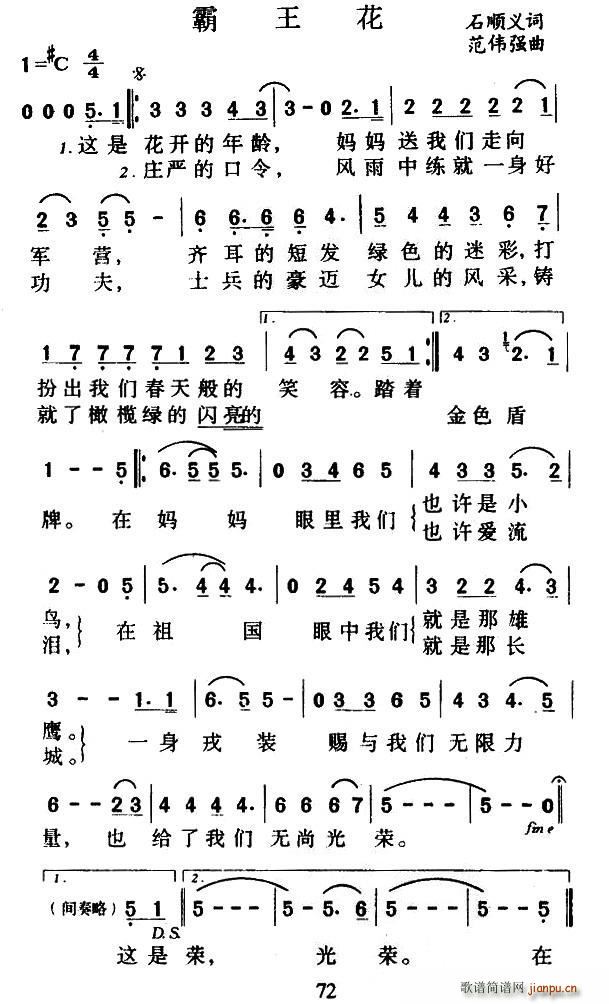 霸王花
石顺义词
范伟强曲
1=#C 4/4
0 0 0 5·1 3 3 3 4 3 3-0 2·1 2 2 2 2 2 1
1.这是花开的年龄，妈妈送我们走向
2.庄严的口令，风雨中练就一身好
2 3 5 5- 6 6·6 6 4· 5 4 4 3 6 7
军营，齐耳的短发绿色的迷彩，打
功夫，士兵的豪迈女儿的风采，铸
1. 2.
1 7 7 7 7 1 2 3 4 3 2 2 5 1 4 3 2·1
扮出我们春天般的笑容。踏着
就了橄榄绿的闪亮的 金色盾
1--5 6·5 5 5· 0 3 4 6 5 4 3 3 5·2
牌。在妈妈眼里我们 也许是小
也许爱流
2-0 5 5·4 4 4· 0 2 4 5 4 3 2 2 4·3
鸟，在祖国眼中我们 就是那雄
泪， 就是那长
3--1·1 6·5 5-- 0 3 3 6 5 4 3 4·5
鹰。一身戎装赐与我们无限力
城。
6--2 3 4 4 4 4· 6 6 6 7 5--- 5--0
量，也给了我们无尚光荣。
fine
1. 2.
（间奏略） 5 1 5--- 5--5 5-5·6 5--5
D.S.
这是荣，光荣。在
72
歌谱简谱网
jianpu.cn